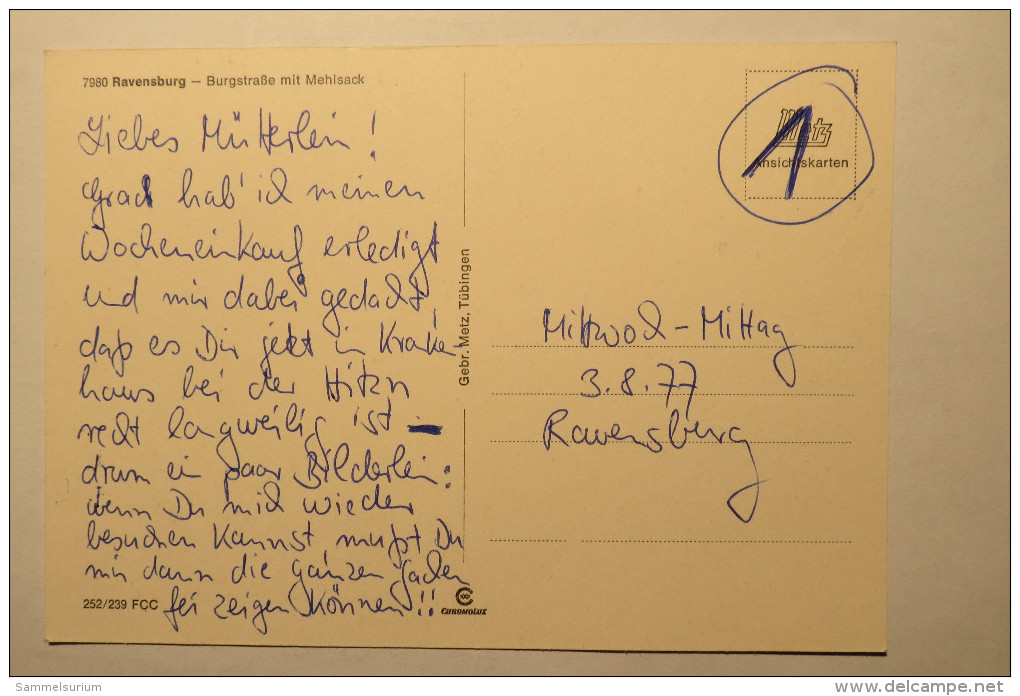 7980 Ravensburg – Burgstraße mit Mehlsack
Liebes Mütterlein!
Grad hab' ich meinen
Wocheneinkauf erledigt
und mir dabei gedacht,
daß es Dir jetzt in Kranken-
haus bei der Hitzn
recht langweilig ist –
drum ein paar Bilderlein:
wenn Du mich wieder
besuchen kannst, mußt Du
mir dann die ganzen Sachen
fei zeigen können!!
252/239 FCC
Gebr. Metz, Tübingen
CHROMOLUX
Metz
Ansichtskarten
1
Mittwoch-Mittag
3.8.77
Ravensburg
Sammelsurium
delcampe.net